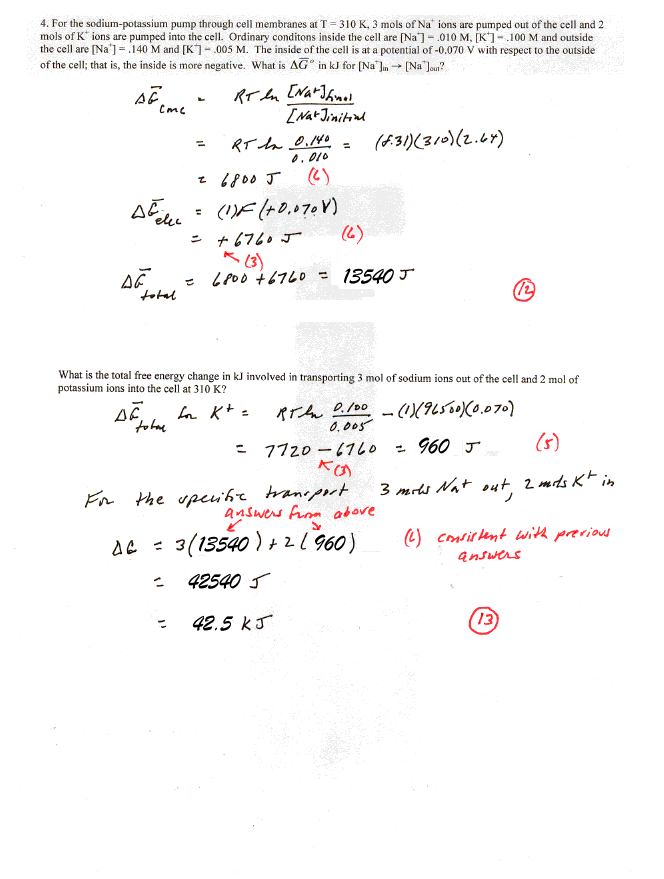 4. For the sodium-potassium pump through cell membranes at T = 310 K, 3 mols of Na⁺ ions are pumped out of the cell and 2
mols of K⁺ ions are pumped into the cell. Ordinary conditons inside the cell are [Na⁺] = .010 M, [K⁺] = .100 M and outside
the cell are [Na⁺] = .140 M and [K⁺] = .005 M. The inside of the cell is at a potential of -0.070 V with respect to the outside
of the cell; that is, the inside is more negative. What is ΔG̅° in kJ for [Na⁺]in → [Na⁺]out?
ΔG̅conc = RT ln [Na+]final
[Na+]initial
= RT ln 0.140 / 0.010 = (8.31)(310)(2.64)
= 6800 J (6)
ΔG̅elec = (1)F(+0.070V)
= +6760 J (6)
(3)
ΔG̅total = 6800 + 6760 = 13540 J
(12)
What is the total free energy change in kJ involved in transporting 3 mol of sodium ions out of the cell and 2 mol of
potassium ions into the cell at 310 K?
ΔG̅total for K+ = RT ln 0.100 / 0.005 - (1)(96500)(0.070)
= 7720 - 6760 = 960 J (5)
(3)
For the specific transport 3 mols Na+ out, 2 mols K+ in
answers from above
ΔG = 3(13540) + 2(960) (2) consistent with previous
answers
= 42540 J
= 42.5 KJ (13)